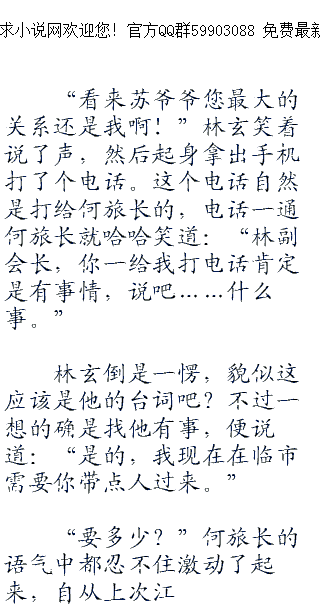 求小说网欢迎您！官方QQ群59903088 免费最新
“看来苏爷爷您最大的
关系还是我啊！”林玄笑着
说了声，然后起身拿出手机
打了个电话。这个电话自然
是打给何旅长的，电话一通
何旅长就哈哈笑道：“林副
会长，你一给我打电话肯定
是有事情，说吧……什么
事。”
林玄倒是一愣，貌似这
应该是他的台词吧？不过一
想的确是找他有事，便说
道：“是的，我现在在临市
需要你带点人过来。”
“要多少？”何旅长的
语气中都忍不住激动了起
来，自从上次江